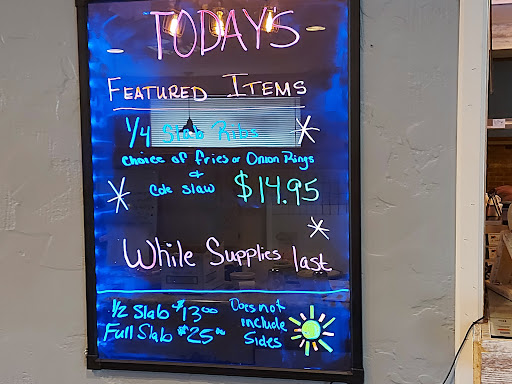 TODAY'S
FEATURED ITEMS
1/4 Slab Ribs
choice of fries or Onion Rings
+
Cole slaw $14.95
While Supplies last
1/2 Slab $13.00
Full Slab $25.00
Does not
include
Sides